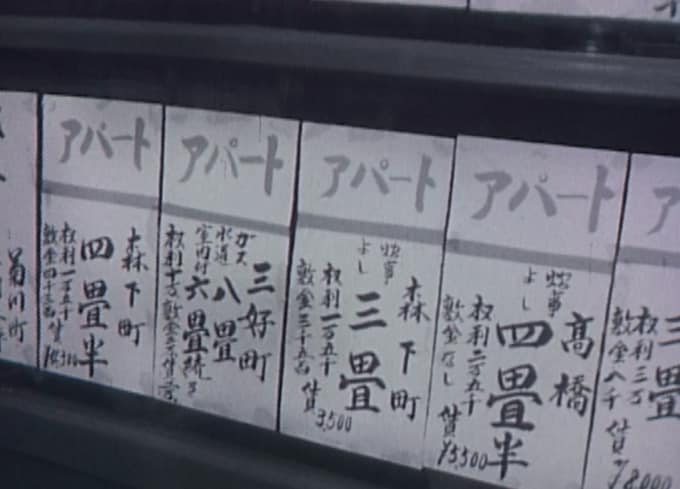 菊川町
アパート
森下町
四畳半
権利一万五千
敷金四千三百
アパート
ガス
水道
室内付
三好町
八畳
六畳続き
アパート
炊事
よし
森下町
三畳
権利一万五千
敷金三千五百
賃
3,500
アパート
炊事
よし
高橋
四畳半
権利二万五千
敷金なし
賃
¥5,500
ア
三畳
権利三万
敷金八千
賃